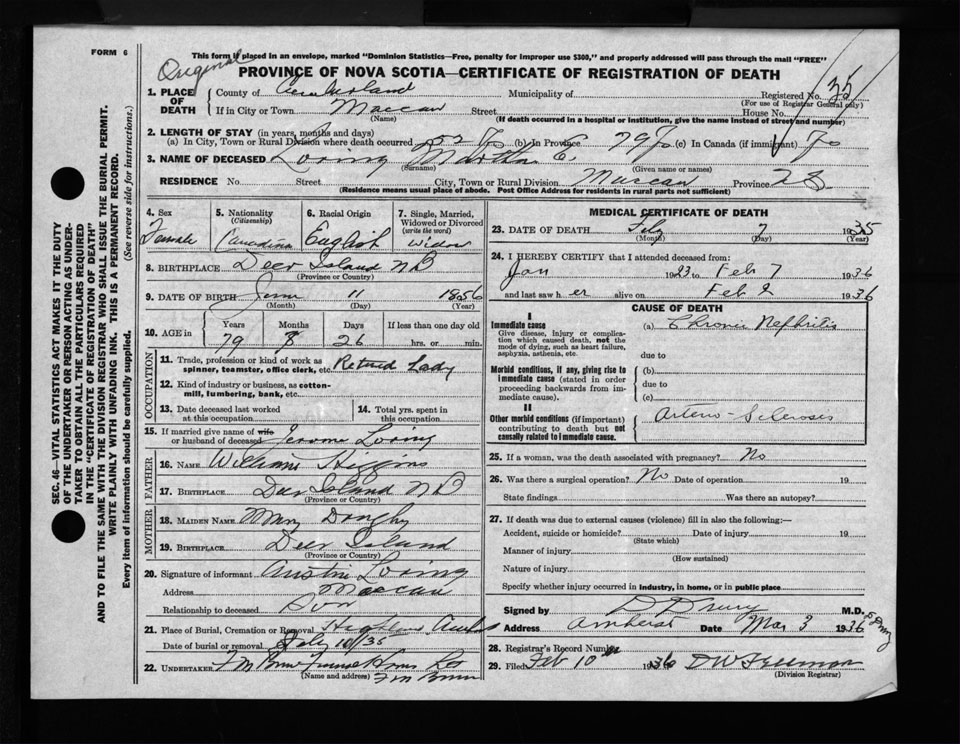 FORM 6
This form if placed in an envelope, marked "Dominion Statistics—Free, penalty for improper use $300," and properly addressed will pass through the mail "FREE"
Original
PROVINCE OF NOVA SCOTIA—CERTIFICATE OF REGISTRATION OF DEATH
1. PLACE OF DEATH
County of Cumberland Municipality of Registered No. 35
(For use of Registrar General only)
If in City or Town Maccan Street House No.
(Name) (If death occurred in a hospital or institution, give the name instead of street and number)
2. LENGTH OF STAY (in years, months and days)
(a) In City, Town or Rural Division where death occurred (b) In Province 79 (c) In Canada (if immigrant)
3. NAME OF DECEASED Loring Martha E.
(Surname) (Given name or names)
RESIDENCE No. Street City, Town or Rural Division Maccan Province
(Residence means usual place of abode. Post Office Address for residents in rural parts not sufficient)
4. Sex
Female
5. Nationality (Citizenship)
Canadian
6. Racial Origin
English
7. Single, Married, Widowed or Divorced (write the word)
Widow
8. BIRTHPLACE Deer Island NB
(Province or Country)
9. DATE OF BIRTH 11 1856
(Month) (Day) (Year)
10. AGE in Years Months Days If less than one day old
79 8 26 hrs. or min.
OCCUPATION
11. Trade, profession or kind of work as spinner, teamster, office clerk, etc. Retired Lady
12. Kind of industry or business, as cotton-mill, lumbering, bank, etc.
13. Date deceased last worked at this occupation
14. Total yrs. spent in this occupation
15. If married give name of wife or husband of deceased Jerome Loring
FATHER
16. NAME William Higgins
17. BIRTHPLACE Deer Island NB
(Province or Country)
MOTHER
18. MAIDEN NAME Mary
19. BIRTHPLACE Deer Island
(Province or Country)
20. Signature of informant Austin Loring
Address Maccan
Relationship to deceased Son
21. Place of Burial, Cremation or Removal Highland
Date of burial or removal 10/35
22. UNDERTAKER
(Name and address)
MEDICAL CERTIFICATE OF DEATH
23. DATE OF DEATH 7 1935
(Month) (Day) (Year)
24. I HEREBY CERTIFY that I attended deceased from:
Jan 1923 to Feb 7 1936
and last saw her alive on Feb 2 1936
CAUSE OF DEATH
I
Immediate cause (a) Chronic Nephritis
Give disease, injury or complication which caused death, not the mode of dying, such as heart failure, asphyxia, asthenia, etc.
due to
Morbid conditions, if any, giving rise to immediate cause (stated in order proceeding backwards from immediate cause).
(b)
due to
(c)
II
Other morbid conditions (if important) contributing to death but not causally related to immediate cause.
Arterio-Sclerosis
25. If a woman, was the death associated with pregnancy? No
26. Was there a surgical operation? No Date of operation 19
State findings Was there an autopsy?
27. If death was due to external causes (violence) fill in also the following:—
Accident, suicide or homicide? Date of injury 19
(State which)
Manner of injury
(How sustained)
Nature of injury
Specify whether injury occurred in industry, in home, or in public place
Signed by M.D.
Address Amherst Date Mar 3 1936
28. Registrar's Record Number
29. Filed Feb 10 1936 D W Freeman
(Division Registrar)
SEC. 46—VITAL STATISTICS ACT MAKES IT THE DUTY
OF THE UNDERTAKER OR PERSON ACTING AS UNDER-
TAKER TO OBTAIN ALL THE PARTICULARS REQUIRED
IN THE "CERTIFICATE OF REGISTRATION OF DEATH"
AND TO FILE THE SAME WITH THE DIVISION REGISTRAR WHO SHALL ISSUE THE BURIAL PERMIT.
WRITE PLAINLY WITH UNFADING INK. THIS IS A PERMANENT RECORD.
Every item of information should be carefully supplied. (See reverse side for instructions.)